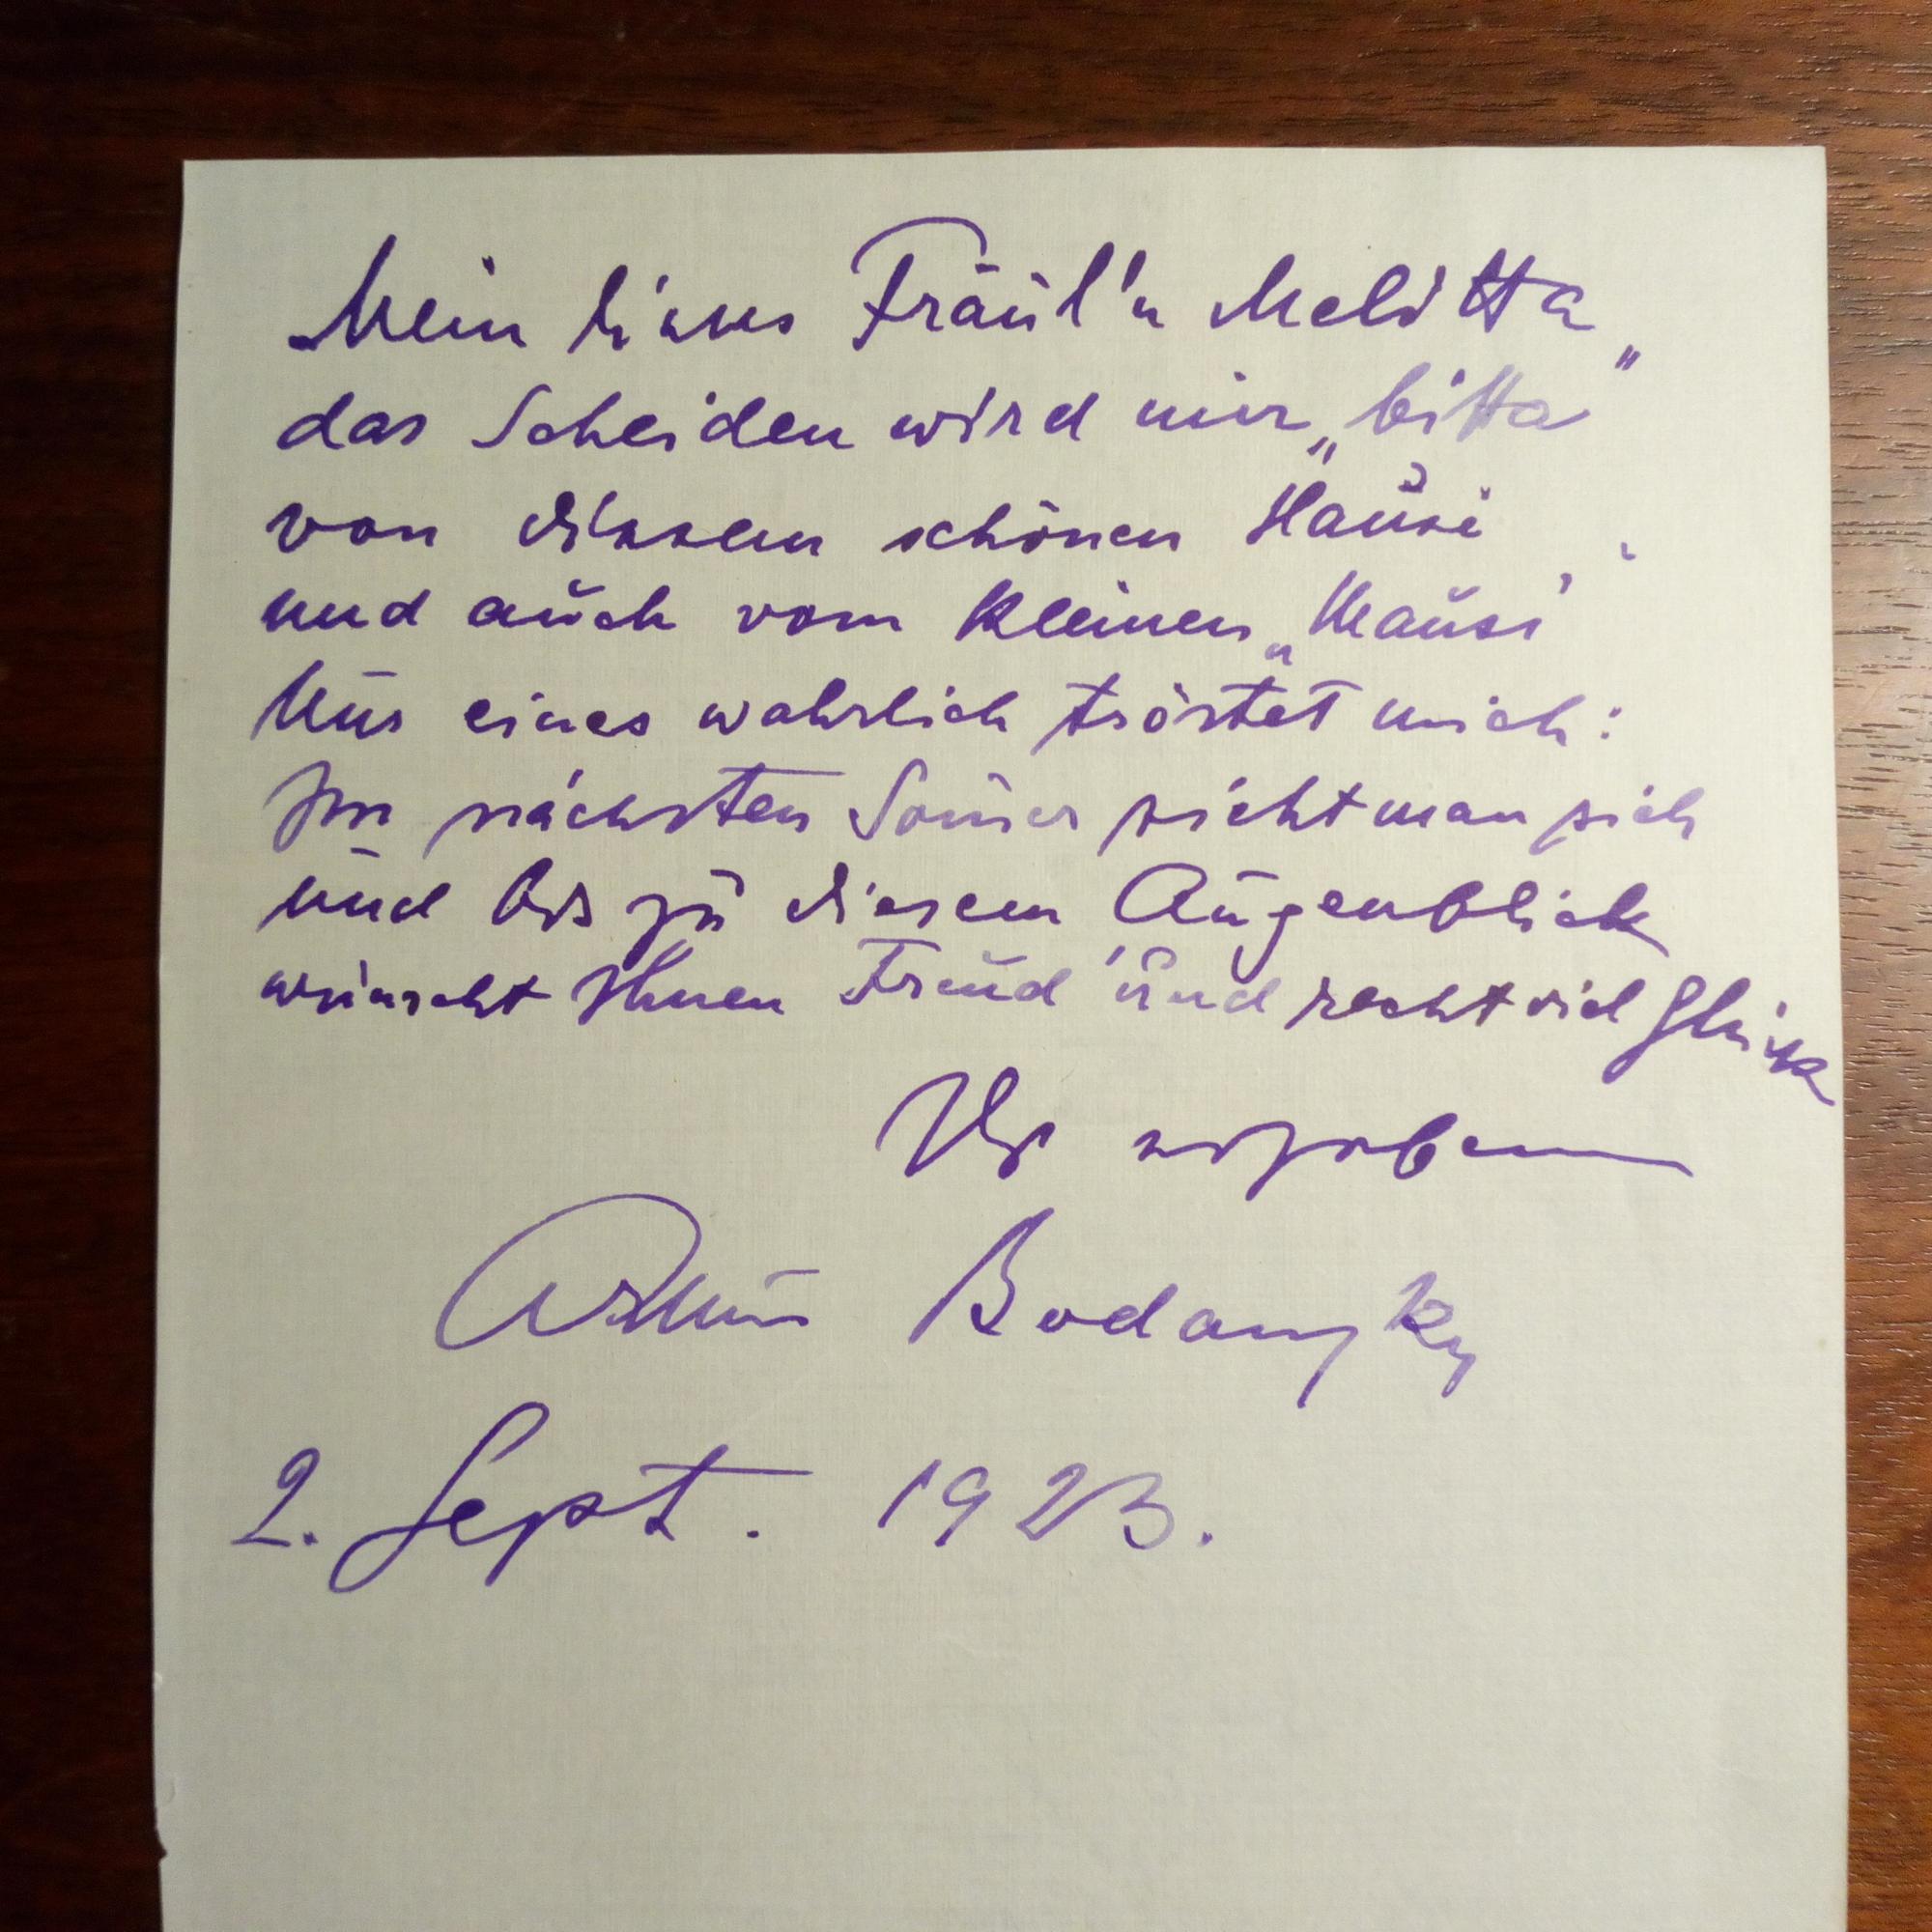 Mein liebes Fräul'n Melitta
das Scheiden wird mir „bitta"
von diesem schönen Häusi
und auch vom kleinen „Mausi"
Nur eines wahrlich tröstet mich:
Im nächsten Som̄er sieht man sich
und bis zu diesem Augenblick
wünscht Ihnen Freud' und recht viel Glück
Ihr ergebener
Artur Bodanzky
2. Sept. 1923.